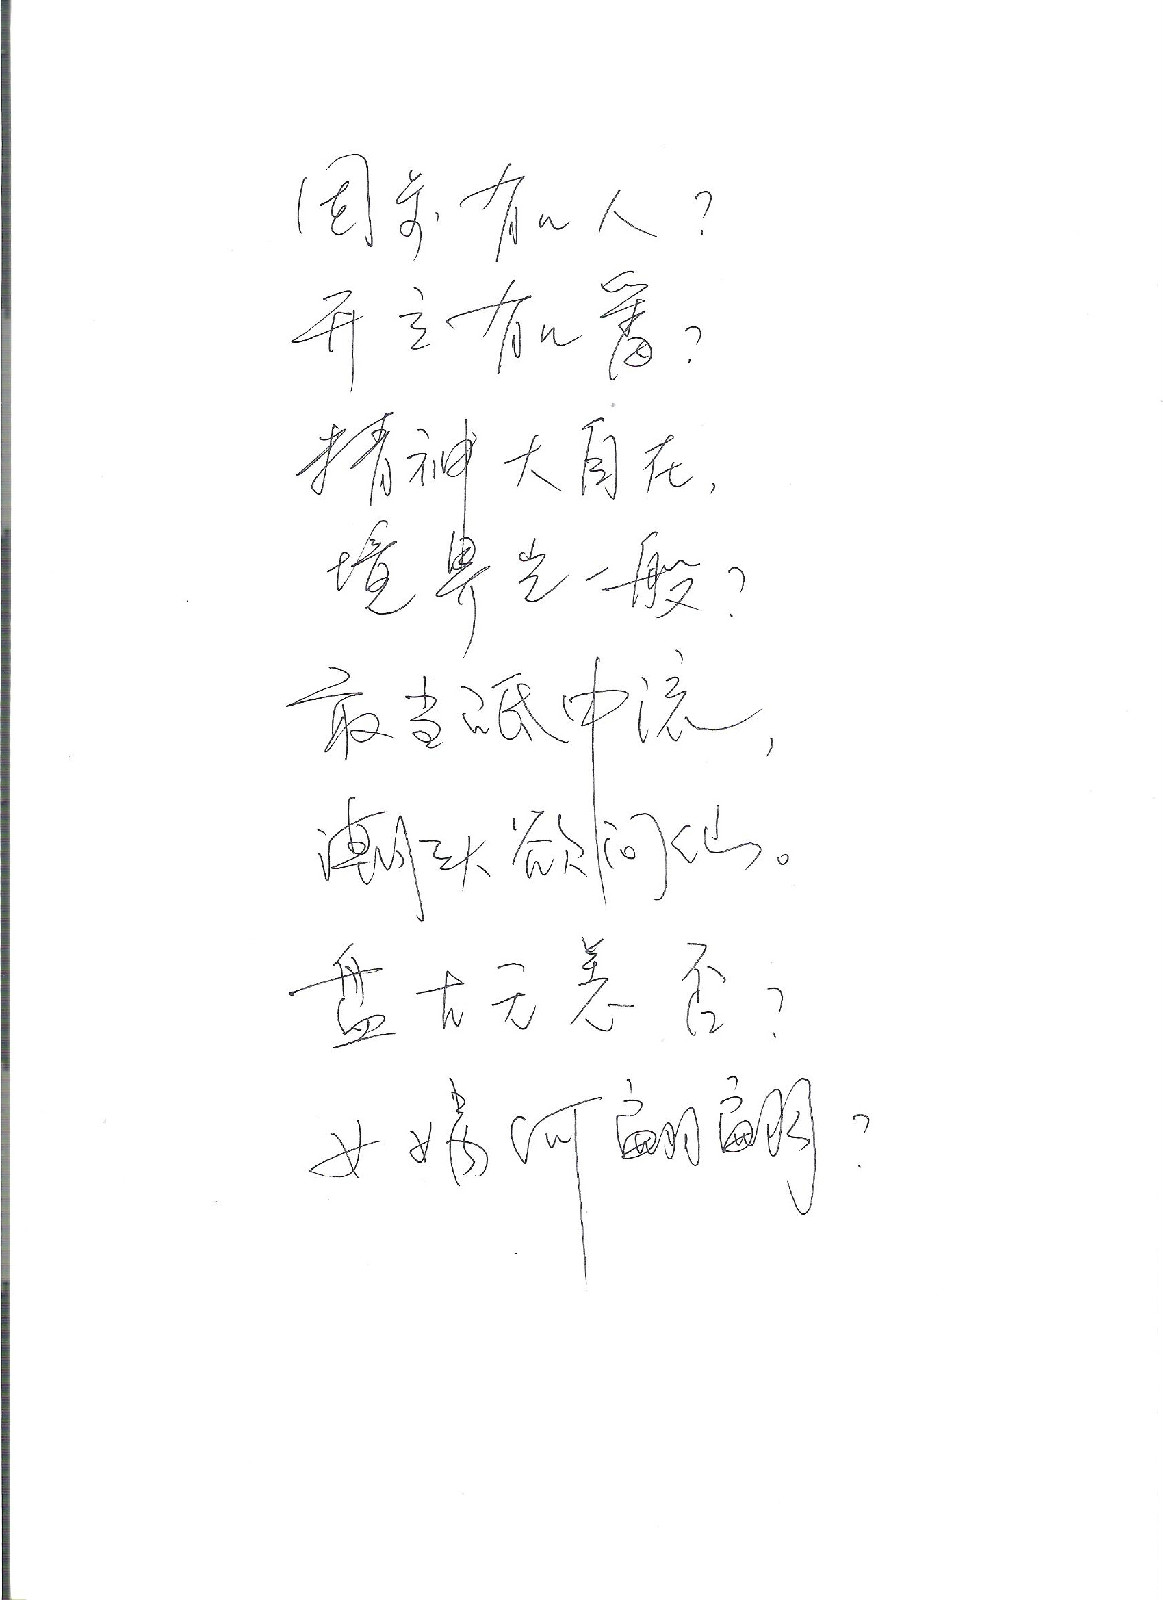 有几人？
开有几番？
精神大自在，
境界岂一般？
敢当砥中流，
潮头欲问仙。
盘古无恙否？
女娲何翩翩？